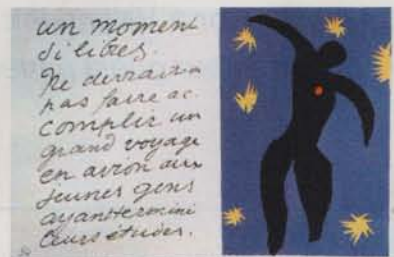 un moment
si libres.
Ne devrait-on
pas faire ac
complir un
grand voyage
en avion aux
jeunes gens
ayant termini
leurs études.